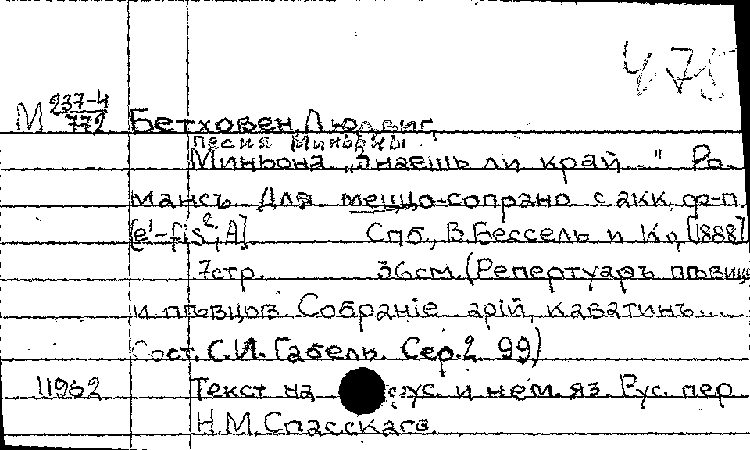 475
М 237-4/772 Бетховен, Людвиг.
Песня Миньоны.
Миньона „Знаешь ли край..." Ро-
мансъ. Для меццо-сопрано с акк. ф-п.
[e¹-fis²; A]. Спб., В. Бессель и Ко, [1888]
7 стр. 36 см. (Репертуаръ пѣвиц
и пѣвцов. Собранiе арiй, каватинъ...
Сост. С.И. Габель. Сер. 2. 99)
11962 Текст на рус. и нем. яз. Рус. пер.
Н.М. Спасскаго.